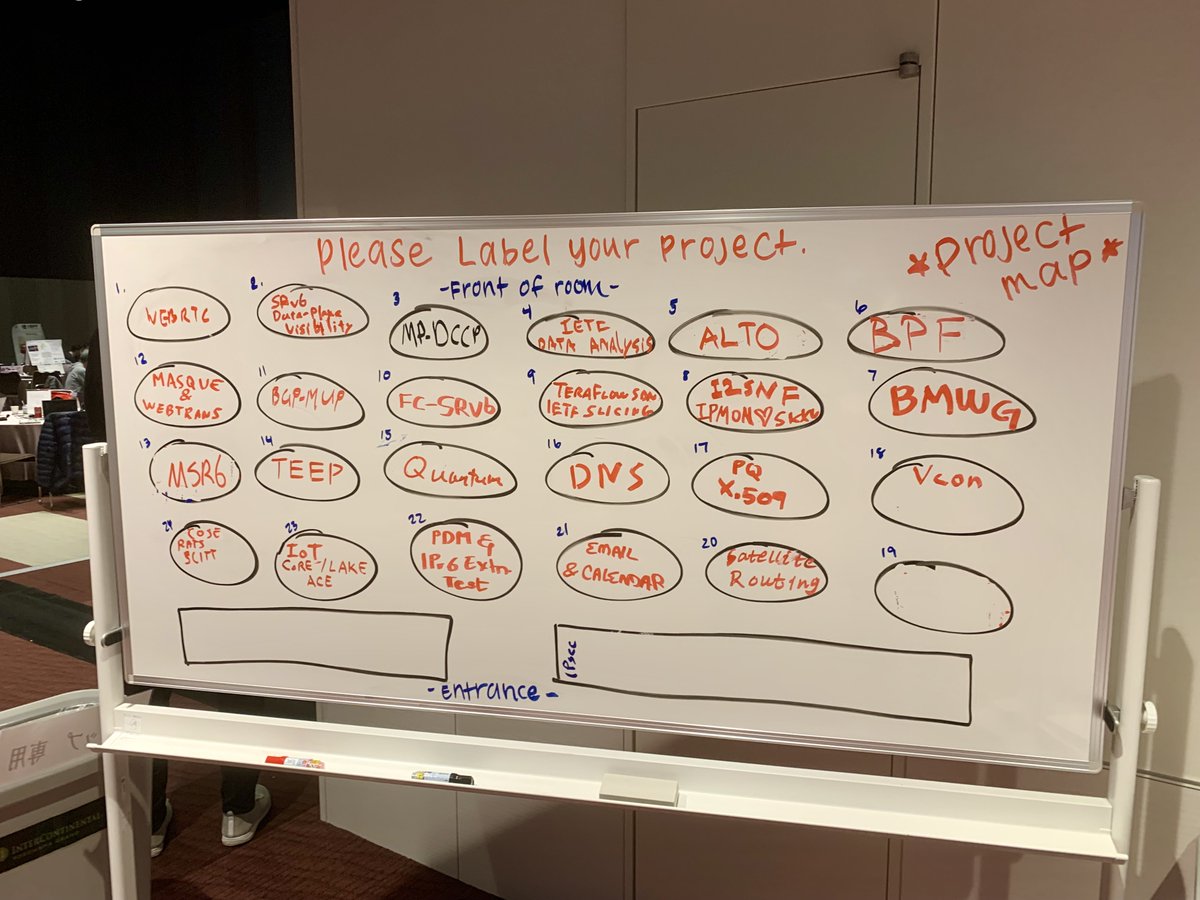 Please Label your project.
*project map*
-Front of room-
1. WEBRTC
2. SRv6 Data-Plane Visibility
3 MP-DCCP
4 IETF DATA ANALYSIS
5 ALTO
6 BPF
12 MASQUE & WEBTRANS
11 BGP-MUP
10 FC-SRv6
9 TERAFLOWSDN IETF SLICING
8 I2SNF IPMON♡
7 BMWG
13 MSR6
14 TEEP
15 Quantum
16 DNS
17 PQ X.509
18 Vcon
24 COSE RATS SCITT
23 IoT CORE/LAKE ACE
22 PDM & IPv6 Extn Test
21 EMAIL & CALENDAR
20 Satellite Routing
19
IPsec
-Entrance-
プ 専用
INTERCONTINENTAL